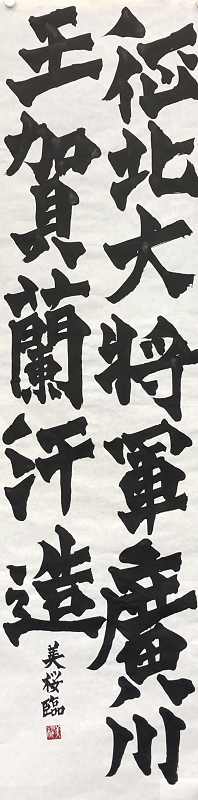 征北大将軍廣川
王賀蘭汗造
美桜臨